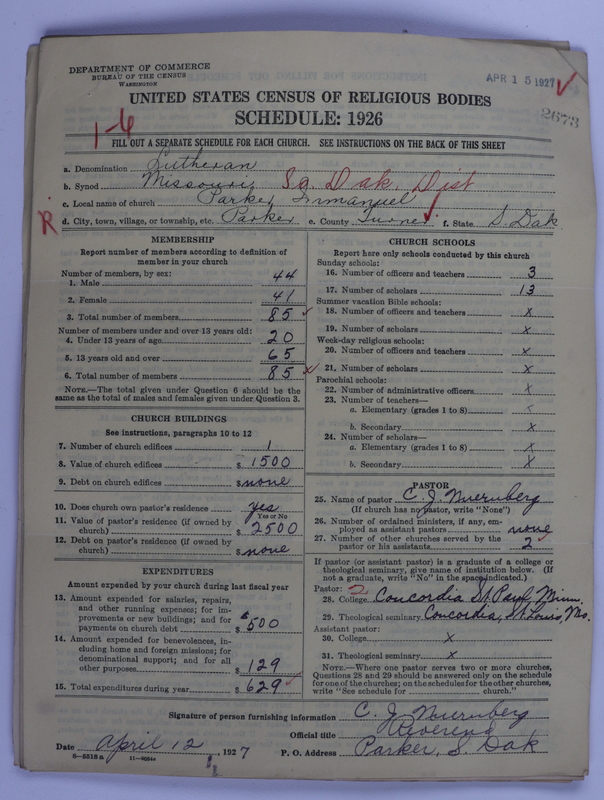 DEPARTMENT OF COMMERCE
BUREAU OF THE CENSUS
WASHINGTON
APR 15 1927
UNITED STATES CENSUS OF RELIGIOUS BODIES
SCHEDULE: 1926
2673
1-6
FILL OUT A SEPARATE SCHEDULE FOR EACH CHURCH. SEE INSTRUCTIONS ON THE BACK OF THIS SHEET
a. Denomination Lutheran
b. Synod Missouri So. Dak. Dist
c. Local name of church Parker Immanuel
R
d. City, town, village, or township, etc. Parker e. County Turner f. State S. Dak.
MEMBERSHIP
Report number of members according to definition of
member in your church
Number of members, by sex:
1. Male 44
2. Female 41
3. Total number of members 85
Number of members under and over 13 years old:
4. Under 13 years of age 20
5. 13 years old and over 65
6. Total number of members 85
NOTE.—The total given under Question 6 should be
same as the total of males and females given under Question 3.
CHURCH BUILDINGS
See instructions, paragraphs 10 to 12
7. Number of church edifices 1
8. Value of church edifices $ 1500
9. Debt on church edifices $ none
10. Does church own pastor's residence yes
Yes or No
11. Value of pastor's residence (if owned by
church) $ 2500
12. Debt on pastor's residence (if owned by
church) $ none
EXPENDITURES
Amount expended by your church during last fiscal year
13. Amount expended for salaries, repairs,
and other running expenses; for im-
provements or new buildings; and for
payments on church debt $ 500
14. Amount expended for benevolences, in-
cluding home and foreign missions; for
denominational support; and for all
other purposes $ 129
15. Total expenditures during year $ 629
CHURCH SCHOOLS
Report here only schools conducted by this church
Sunday schools:
16. Number of officers and teachers 3
17. Number of scholars 13
Summer vacation Bible schools:
18. Number of officers and teachers x
19. Number of scholars x
Week-day religious schools:
20. Number of officers and teachers x
21. Number of scholars x
Parochial schools:
22. Number of administrative officers x
23. Number of teachers—
a. Elementary (grades 1 to 8) x
b. Secondary x
24. Number of scholars—
a. Elementary (grades 1 to 8) x
b. Secondary x
PASTOR
25. Name of pastor C. J. Nuernberg
(If church has no pastor, write "None")
26. Number of ordained ministers, if any, em-
ployed as assistant pastors none
27. Number of other churches served by the
pastor or his assistants 2
If pastor (or assistant pastor) is a graduate of a college or
theological seminary, give name of institution below. (If
not a graduate, write "No" in the space indicated.)
Pastor: 2
28. College Concordia St. Paul, Minn.
29. Theological seminary Concordia, St. Louis, Mo.
Assistant pastor:
30. College x
31. Theological seminary x
NOTE.—Where one pastor serves two or more churches,
Questions 28 and 29 should be answered only on the schedule
for one of the churches; on the schedules for the other churches,
write "See schedule for church."
Signature of person furnishing information C. J. Nuernberg
Official title Reverend
Date April 12, 1927 P. O. Address Parker, S. Dak